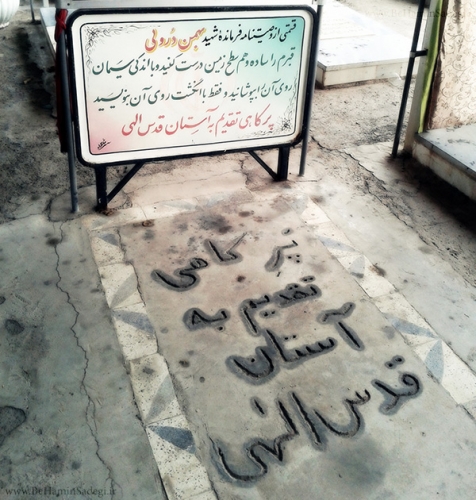 قسمتی از وصیتنامه فرمانده شهید بهمن دُرولی
قبرم را ساده و هم سطح زمین درست کنید و با اندکی سیمان
روی آن را بپوشانید و فقط با انگشت روی آن بنویسید
پر کاهی تقدیم به آستان قدس الهی
پَرِ کاهی
تقدیم به
آستان
قدس الهی
www.BeHaminSadegi.ir